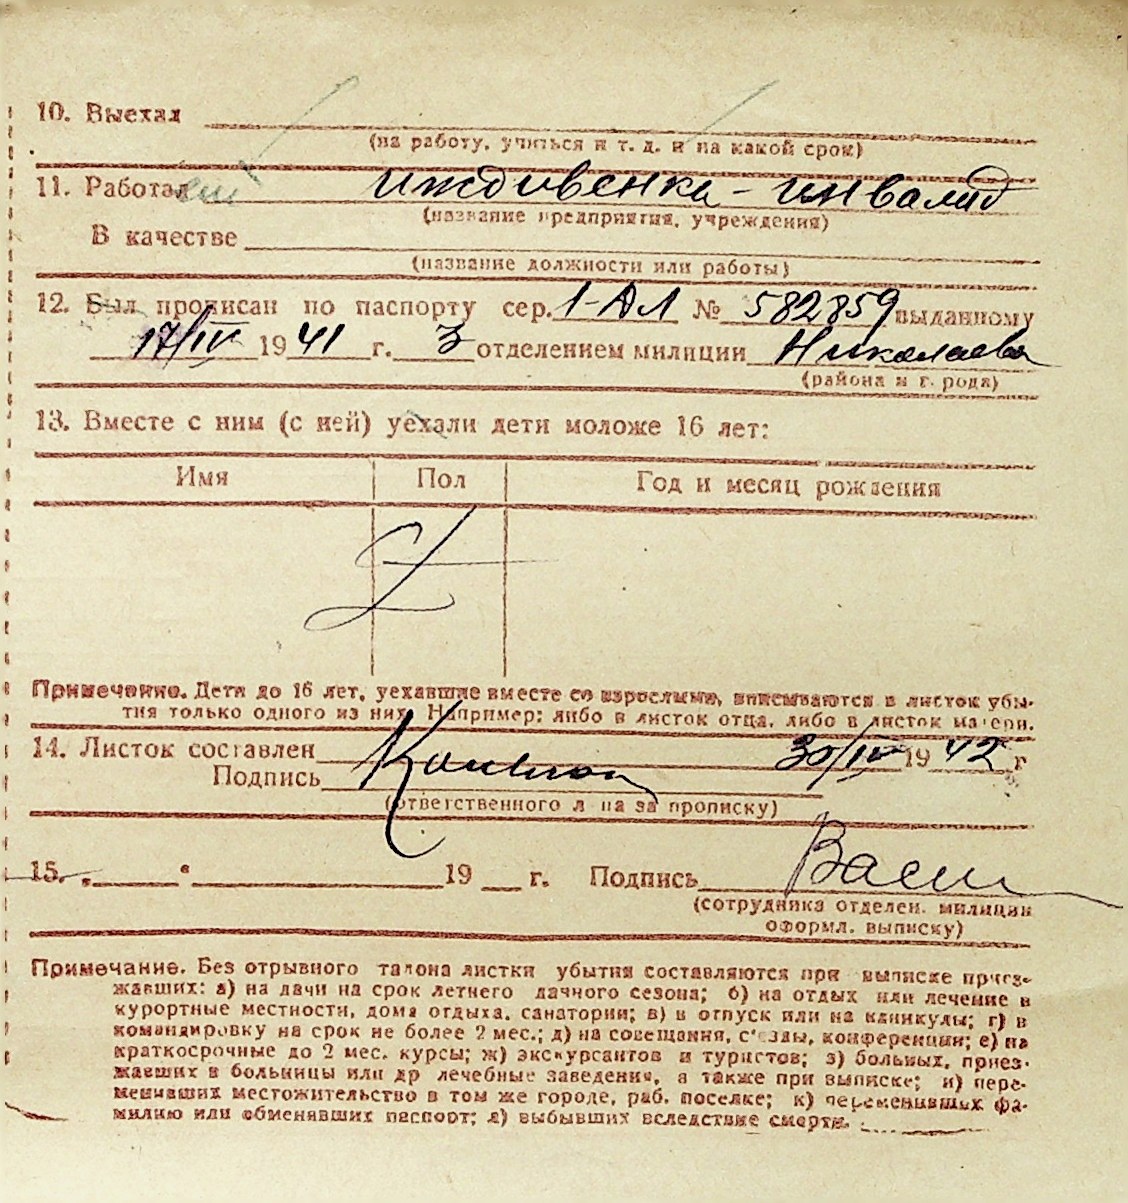 10. Выехал
(на работу, учиться и т. д. и на какой срок)
11. Работал иждивенка - инвалид
(название предприятия, учреждения)
В качестве
(название должности или работы)
12. Был прописан по паспорту сер. 1-АЛ № 582859 выданному
17/IV 1941 г. 3 отделением милиции Николаева
(района и г. рода)
13. Вместе с ним (с ней) уехали дети моложе 16 лет:
Имя Пол Год и месяц рождения
Примечение. Дети до 16 лет, уехавшие вместе со взрослыми, вписываются в листок убы-
тия только одного из них. Например: либо в листок отца, либо в листок матери.
14. Листок составлен 30/IV 1942 г
Подпись
(ответственного л на за прописку)
15. „ “ 19 г. Подпись Васи
(сотрудника отделен. милиции
оформл. выписку)
Примечание. Без отрывного талона листки убытия составляются при выписке приез-
жавших: а) на дачи на срок летнего дачного сезона; б) на отдых или лечение в
курортные местности, дома отдыха, санатории; в) в отпуск или на каникулы; г) в
командировку на срок не более 2 мес.; д) на совещания, с'езды, конференции; е) на
краткосрочные до 2 мес. курсы; ж) экскурсантов и туристов; з) больных, приез-
жавших в больницы или др лечебные заведения, а также при выписке; и) пере-
менивших местожительство в том же городе, раб. поселке; к) переменивших фа-
милию или обменявших паспорт; л) выбывших вследствие смерти.